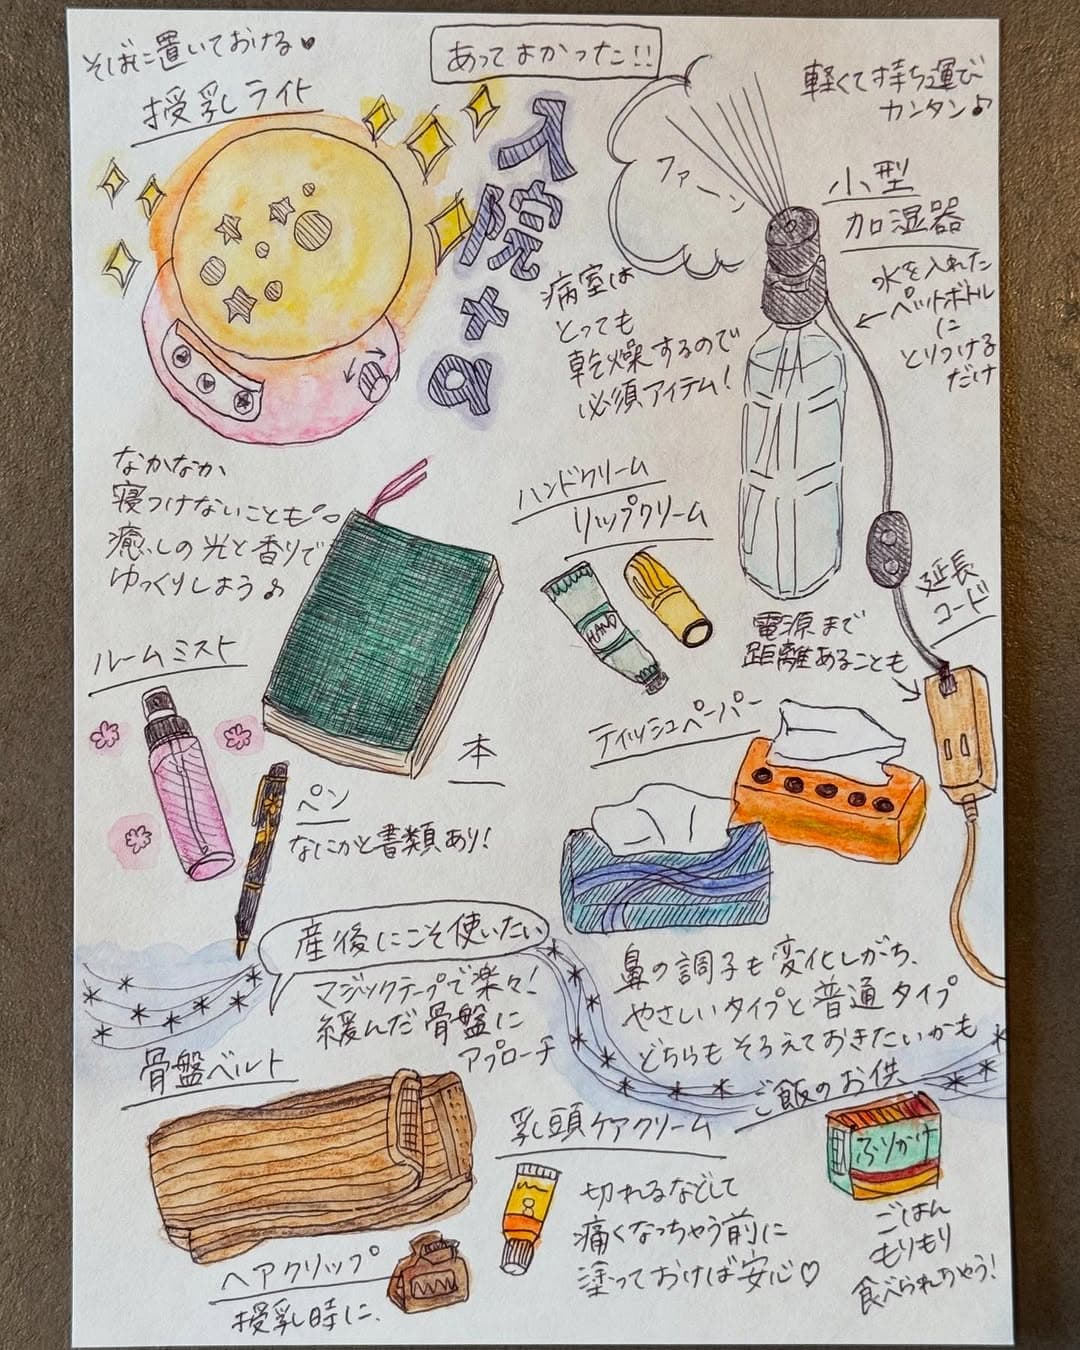 あってよかった!!
入院+α
そばに置いておける♥
授乳ライト
軽くて持ち運び
カンタン♪
小型
加湿器
ファーン
水を入れた
ペットボトル
に
とりつける
だけ
病室は
とっても
乾燥するので
必須アイテム!
なかなか
寝つけないことも。
癒しの光と香りで
ゆっくりしよう♪
ハンドクリーム
リップクリーム
HAND
延長
コード
電源まで
距離あることも
ルームミスト
本
ペン
なにかと書類あり!
ティッシュペーパー
鼻の調子も変化しがち、
やさしいタイプと普通タイプ
どちらもそろえておきたいかも
産後にこそ使いたい
マジックテープで楽々!
緩んだ骨盤に
アプローチ
骨盤ベルト
ヘアクリップ
授乳時に、
乳頭ケアクリーム
切れるなどして
痛くなっちゃう前に
塗っておけば安心♡
ご飯のお供
ふりかけ
ごはん
もりもり
食べられちゃう!